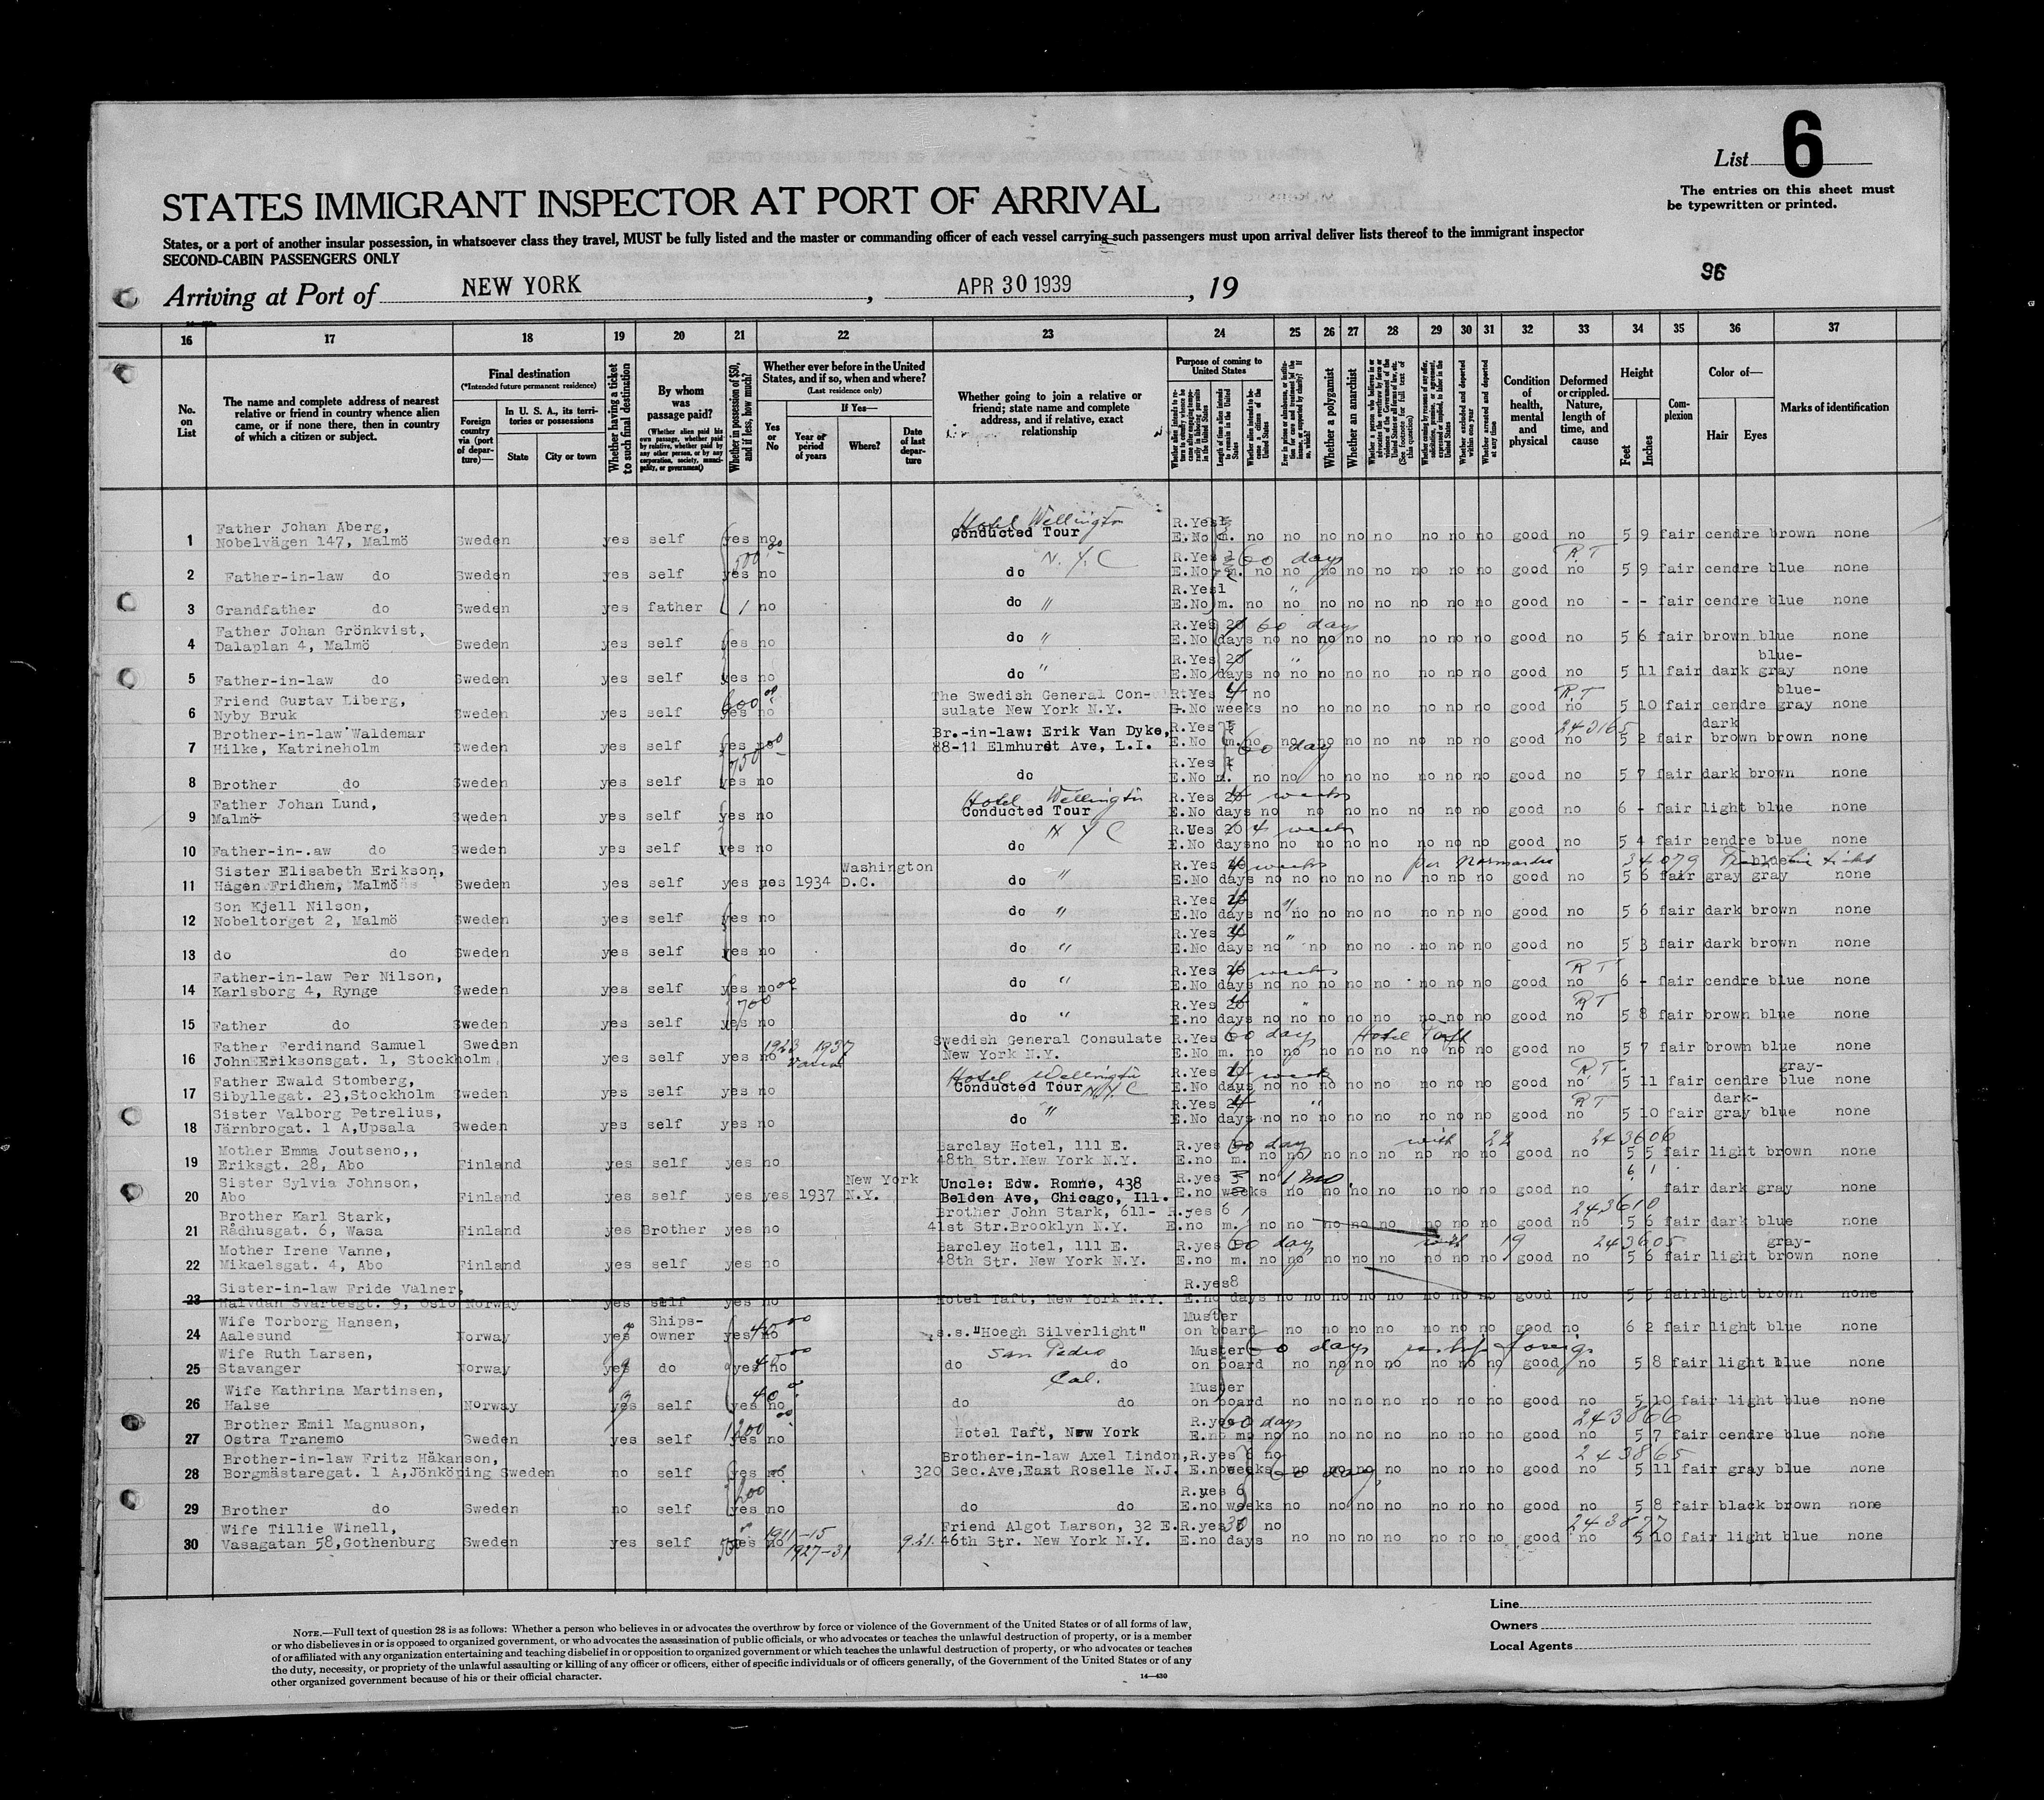 List 6
The entries on this sheet must
be typewritten or printed.
STATES IMMIGRANT INSPECTOR AT PORT OF ARRIVAL
States, or a port of another insular possession, in whatsoever class they travel, MUST be fully listed and the master or commanding officer of each vessel carrying such passengers must upon arrival deliver lists thereof to the immigrant inspector
SECOND-CABIN PASSENGERS ONLY
96
Arriving at Port of NEW YORK, APR 30 1939, 19
16 17 18 19 20 21 22 23 24 25 26 27 28 29 30 31 32 33 34 35 36 37
No. on List
The name and complete address of nearest relative or friend in country whence alien came, or if none there, then in country of which a citizen or subject.
Final destination
(*Intended future permanent residence)
Foreign country via (port of departure)—
In U. S. A., its territories or possessions
State
City or town
Whether having a ticket to such final destination
By whom was passage paid?
(Whether alien paid his own passage, whether paid by relative, whether paid by any other person, or by any corporation, society, municipality, or government)
Whether in possession of $50, and if less, how much?
Whether ever before in the United States, and if so, when and where?
(Last residence only)
Yes or No
If Yes—
Year or period of years
Where?
Date of last departure
Whether going to join a relative or friend; state name and complete address, and if relative, exact relationship
Purpose of coming to United States
Whether a polygamist
Whether an anarchist
Condition of health, mental and physical
Deformed or crippled. Nature, length of time, and cause
Height
Feet
Inches
Complexion
Color of—
Hair
Eyes
Marks of identification
Hotel Wellington
1 Father Johan Aberg, Nobelvägen 147, Malmö Sweden yes self yes no Conducted Tour R.Yes E.No m. no no no no no no no no good no 5 9 fair cendre brown none
500 N.Y.C 60 days R.T
2 Father-in-law do Sweden yes self yes no do R.Yes E.No m. no no no no no no no no good no 5 9 fair cendre blue none
3 Grandfather do Sweden yes father 1 no do " R.Yes 1 E.No m. no no no no no no no no good no - - fair cendre blue none
4 Father Johan Grönkvist, Dalaplan 4, Malmö Sweden yes self yes no do " R.Yes 20 60 days E.No days no no no no no no no no good no 5 6 fair brown blue none
5 Father-in-law do Sweden yes self yes no do " R.Yes 20 " E.No days no no no no no no no no good no 5 11 fair dark blue-gray none
6 Friend Gustav Liberg, Nyby Bruk Sweden yes self 600 yes no The Swedish General Consulate New York N.Y. R.Yes 4 no E.No weeks no no no no no no no good R.T no 5 10 fair cendre blue-gray none
7 Brother-in-law Waldemar Hilke, Katrineholm Sweden yes self yes no Br.-in-law: Erik Van Dyke, 88-11 Elmhurst Ave, L.I. R.Yes E.No m. no no no no no no no no good 243165 no 5 2 fair dark brown brown none
750 60 day
8 Brother do Sweden yes self yes no do R.Yes E.No m. no no no no no no no no good no 5 7 fair dark brown none
Hotel Wellington
9 Father Johan Lund, Malmö Sweden yes self yes no Conducted Tour R.Yes 4 weeks E.No days no no no no no no no no good no 6 - fair light blue none
N Y C
10 Father-in-.aw do Sweden yes self yes no do R.Ues 20 4 weeks E.No days no no no no no no no no good no 5 4 fair cendre blue none
11 Sister Elisabeth Erikson, Hagen Fridhem, Malmö Sweden yes self yes yes 1934 Washington D.C. do " R.Yes 4 weeks E.No days no no no no no no no no good no 5 6 fair gray gray none
per Normandie 34079
12 Son Kjell Nilson, Nobeltorget 2, Malmö Sweden yes self yes no do " R.Yes 4 " E.No days no no no no no no no no good no 5 6 fair dark brown none
13 do do Sweden yes self yes no do " R.Yes " E.No days no no no no no no no good no 5 3 fair dark brown none
14 Father-in-law Per Nilson, Karlsborg 4, Rynge Sweden yes self yes no do " R.Yes 4 weeks E.No days no no no no no no no no good R T no 6 - fair cendre blue none
700
15 Father do Sweden yes self yes no do " R.Yes " E.no days no no no no no no no no good R T no 5 8 fair brown blue none
16 Father Ferdinand Samuel John Eriksonsgat. 1, Stockholm Sweden yes self yes no 1923 1937 Swedish General Consulate New York N.Y. R.Yes 60 days Hotel Taft E.No m. no no no no no no no no good no 5 7 fair brown blue none
Hotel Wellington
17 Father Ewald Stomberg, Sibyllegat. 23,Stockholm Sweden yes self yes no Conducted Tour N.Y.C R.Yes 4 week E.No daus no no no no no no no no good R.T. no 5 11 fair cendre gray-blue none
18 Sister Valborg Petrelius, Järnbrogat. 1 A,Upsala Sweden yes self yes no do " R.Yes " E.No days no no no no no no no no good R T no 5 10 fair dark-gray blue none
19 Mother Emma Joutseno,, Eriksgt. 28, Abo Finland yes self yes no Barclay Hotel, 111 E. 48th Str.New York N.Y. R.yes 60 day E.no m. no no no no no no no no with 22 good 243606 no 5 5 fair light brown none
20 Sister Sylvia Johnson, Abo Finland yes self yes yes 1937 New York N.Y. Uncle: Edw. Romne, 438 Belden Ave, Chicago, Ill. R.yes 3 no 1 mo. E.no weeks no no no no no no no good no 6 1 fair dark gray none
21 Brother Karl Stark, Rådhusgat. 6, Wasa Finland yes Brother yes no Brother John Stark, 611-41st Str.Brooklyn N.Y. R.yes 6 E.no m. no no no no no no no no good 243610 no 5 6 fair dark blue none
22 Mother Irene Vanne, Mikaelsgat. 4, Abo Finland yes self yes no Barcley Hotel, 111 E. 48th Str. New York N.Y. R.yes 60 day E.no m. no no no no no no no no with 19 good 243605 no 5 6 fair light gray-brown none
23 Sister-in-law Fride Valner, Halvdan Svartesgt. 9, Oslo Norway yes self yes no Hotel Taft, New York N.Y. R.yes8 E.no days no no no no no no no no good no 5 5 fair light brown none
24 Wife Torborg Hansen, Aalesund Norway yes Ships-owner yes no s.s."Hoegh Silverlight" Muster on board no no no no no no no good no 6 2 fair light blue none
San Pedro Cal. 60 days reship foreign
25 Wife Ruth Larsen, Stavanger Norway yes do yes no do do Muster on board no no no no no no no good no 5 8 fair light blue none
26 Wife Kathrina Martinsen, Halse Norway yes self yes 40 no do do Muster on board no no no no no no no good no 5 10 fair light blue none
27 Brother Emil Magnuson, Ostra Tranemo Sweden yes self 1200 yes no Hotel Taft, New York R.yes 60 days E.no m. no no no no no no no no good 243866 no 5 7 fair cendre blue none
28 Brother-in-law Fritz Håkanson, Borgmästaregat. 1 A,Jönköping Sweden no self yes no Brother-in-law Axel Lindon, 320 Sec.Ave,East Roselle N.J. R.yes 6 no E.no weeks 60 days no no no no no no no good 243865 no 5 11 fair gray blue none
200
29 Brother do Sweden no self yes no do do R.yes 6 E.no weeks no no no no no no no good no 5 8 fair black brown none
30 Wife Tillie Winell, Vasagatan 58,Gothenburg Sweden yes self yes no 1911-15 1927-31 9.21. Friend Algot Larson, 32 E. 46th Str. New York N.Y. R.yes no E.no days no no no no no no no good 243877 no 5 10 fair light blue none
Line
Owners
Local Agents
NOTE.—Full text of question 28 is as follows: Whether a person who believes in or advocates the overthrow by force or violence of the Government of the United States or of all forms of law,
or who disbelieves in or is opposed to organized government, or who advocates the assassination of public officials, or who advocates or teaches the unlawful destruction of property, or is a member
of or affiliated with any organization entertaining and teaching disbelief in or opposition to organized government or which teaches the unlawful destruction of property, or who advocates or teaches
the duty, necessity, or propriety of the unlawful assaulting or killing of any officer or officers, either of specific individuals or of officers generally, of the Government of the United States or of any
other organized government because of his or their official character.
14—430